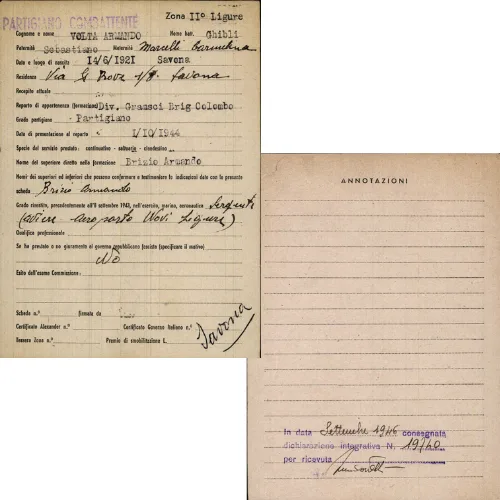 Zona IIº Ligure
PARTIGIANO COMBATTENTE
Cognome e nome VOLTA ARMANDO Nome batt. Ghibli
Paternità Sebastiano Maternità Marcelli
Data e luogo di nascita 14/6/1921 Savona
Residenza Via G Bove Savona
Recapito attuale
Reparto di appartenenza (formazione) Div. Gramsci Brig Colombo
Grado partigiano - Partigiano
Data di presentazione al reparto I/IO/1944
Specie del servizio prestato: continuativo - saltuario - clandestino
Nome del superiore diretto nella formazione Brizio Armando
Nomi dei superiori ed inferiori che possono confermare e testimoniare le indicazioni date con la presente
scheda Brizio Armando
Grado rivestito, precedentemente all'8 settembre 1943, nell'esercito, marina, aeronautica Sergente
(aviere aeroporto Novi Ligure)
Qualifica professionale
Se ha prestato o no giuramento al governo repubblicano fascista (specificare il motivo)
Nò
Esito dell'esame Commissione:
Scheda n.° firmata da
Certificato Alexander n.° Certificato Governo Italiano n.°
Tessera Zona n.° Premio di smobilitazione L.
Savona
ANNOTAZIONI
In data Settembre 1946 consegnata
dichiarazione integrativa N. 19740
per ricevuta